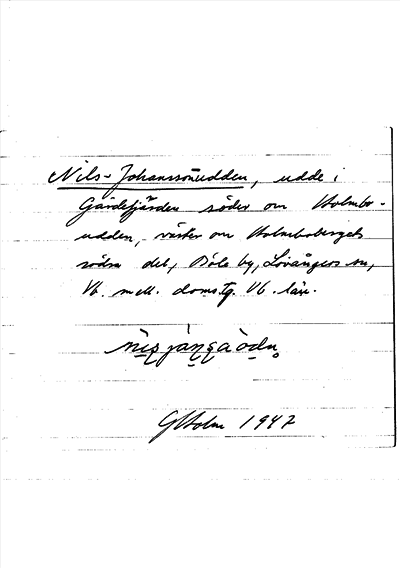 Nils-Johanssonudden, udde i
Gärdefjärden söder om Holmbo-
udden, väster om Holmbobergets
södra del, Böle by, Lövångers sn,
Vb. mell. doms.tg. Vb. län.
GHolm 1947